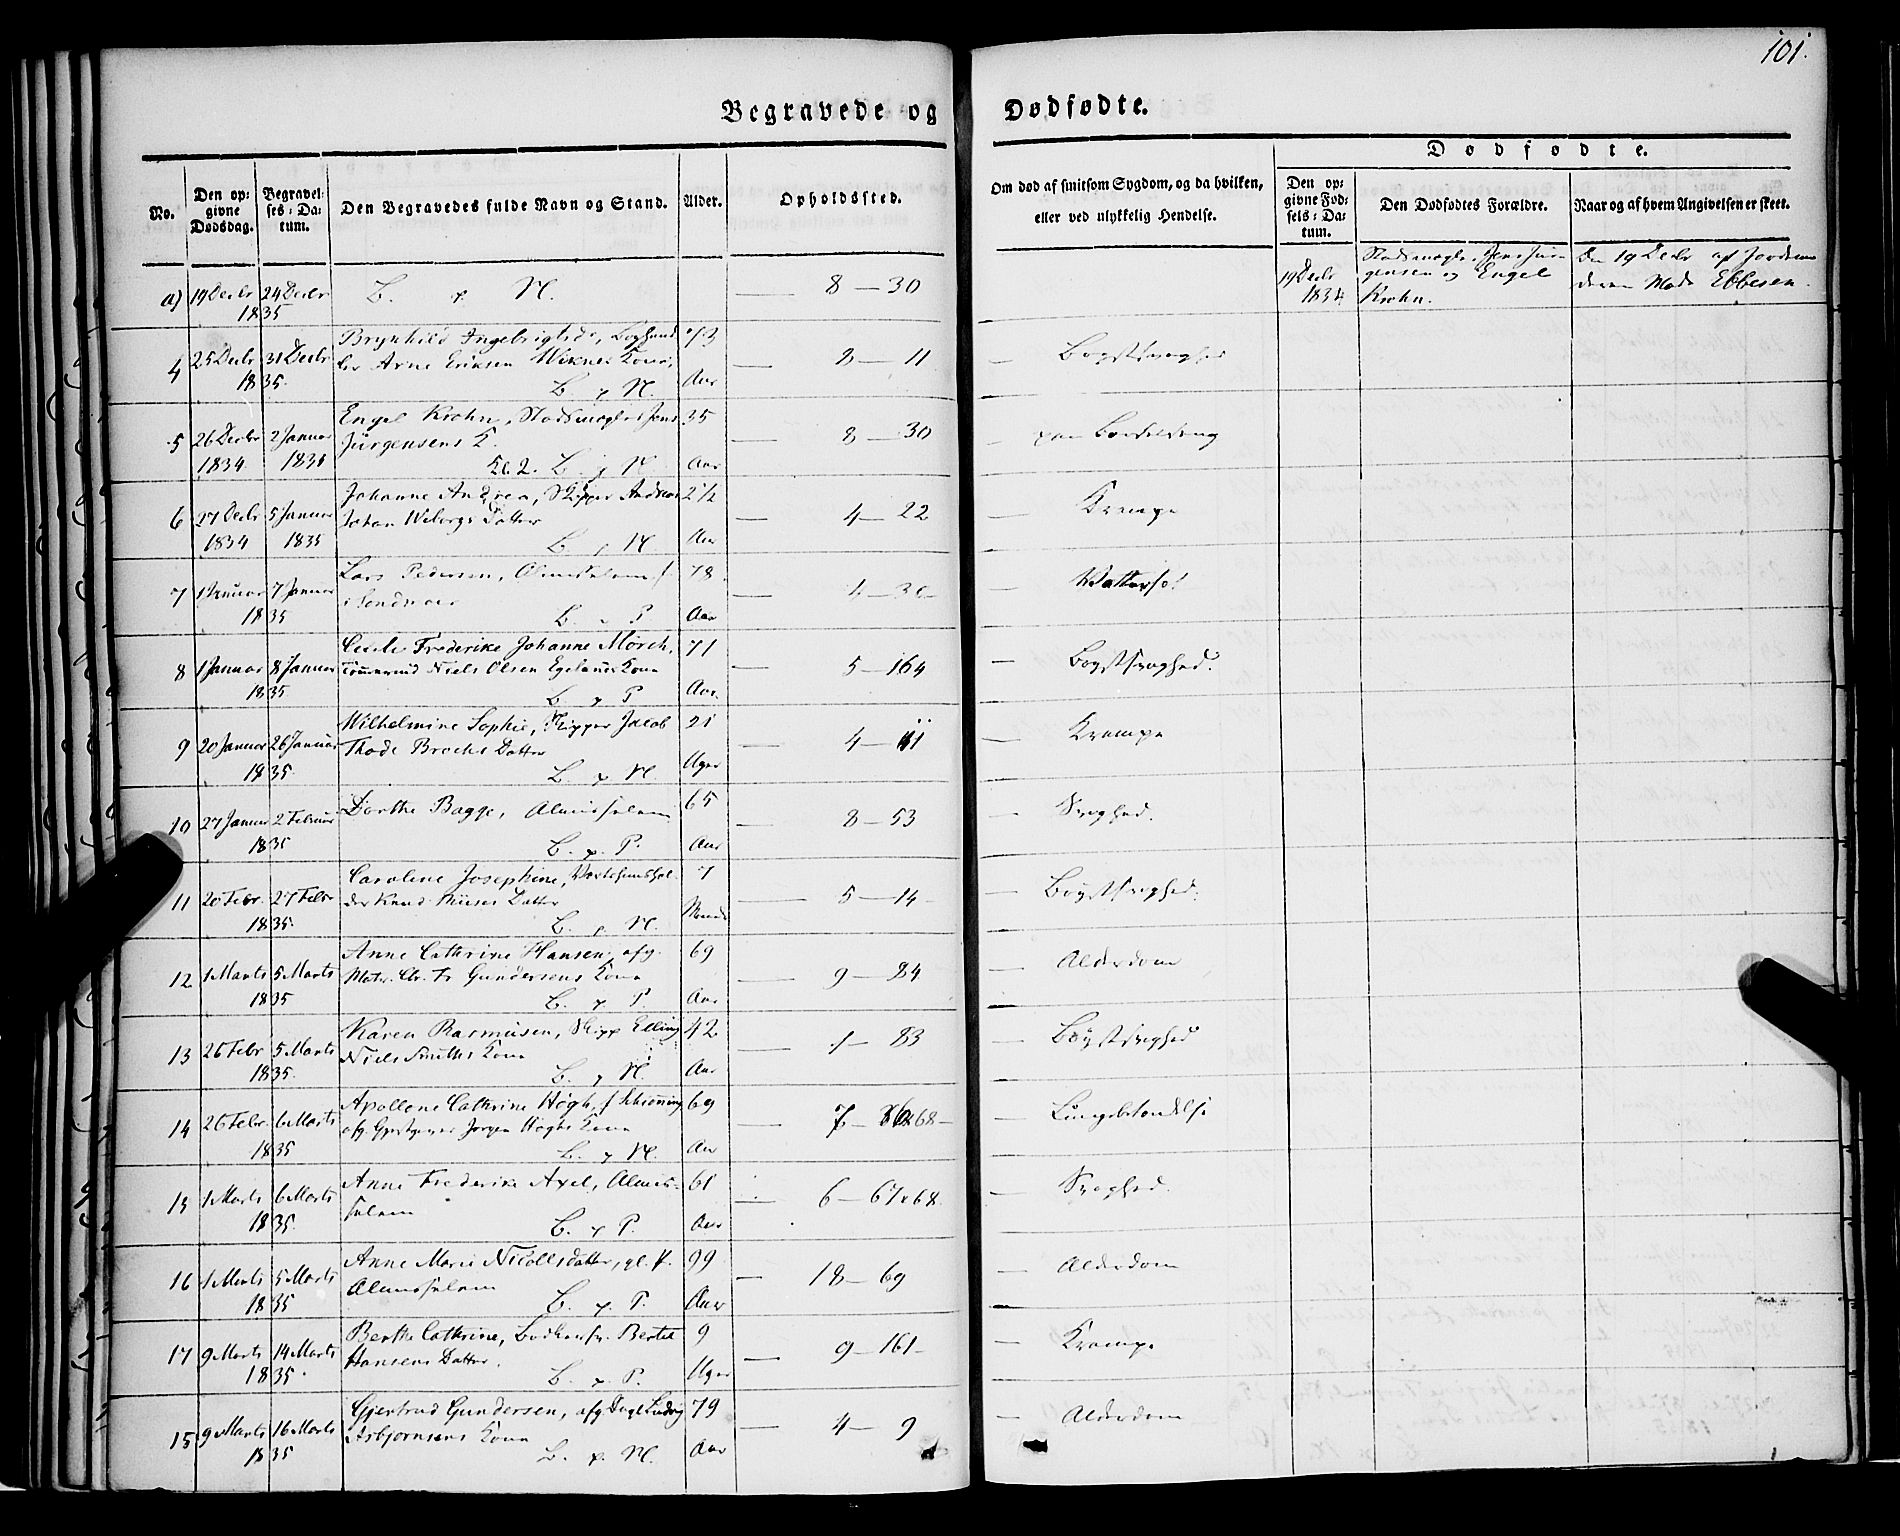 101.
Begravede og Dødfødte.
No.
Den opgivne Dødsdag.
Begravelses-Datum.
Den Begravedes fulde Navn og Stand.
Alder.
Opholdssted.
Om død af smitsom Sygdom, og da hvilken, eller ved ulykkelig Hendelse.
Dødfødte.
Den opgivne Fødsels-Datum.
Den Dødfødtes Forældre.
Naar og af hvem Angivelsen er skeet.
a) 19 Decbr 24 Decbr 1835 B. N. — 8 — 30 19 Decbr 1834 Engel Krohn. Den 19 Decbr af Ebbesen.
4 25 Decbr 31 Decbr 1835. Brynhild Arne Eriksen Wiknes Kone,
B. N. Aar — 8 — 11 — Brystsvaghed
5 26 Decbr 1834. 2 Januar 1835 Engel Krohn, Stadsmægler Jens 35
Jürgensens K.
Kl. 2. B. N. Aar — 8 — 30
6 27 Decbr 1834 5 Januar 1835 Johanne Andrea, Skipper Andreas 2½
Johan Wibergs Datter
B. N. Aar — 4 — 22 — Krampe
7 1 Januar 7 Januar 1835 Lars Pedersen, Almislem 78
B. P. Aar — 4 — 30 — Wattersot
8 1 Januar 8 Januar 1835 Frederike Johanne Mörch, 71
Niels Olsen Egelands Kone
B. P. Aar. — 5 — 164 — Brystsvaghed.
9 20 Januar 26 Januar 1835. Wilhelmine Sophie, Skipper Jacob 21
Thode Brochs Datter
B. N. Uger — 4 — 11 — Krampe
10 27 Januar 2 Februar 1835 Dorthe Bagge, Almisselem 65
B. P. Aar — 8 — 53 — Svaghed.
11 20 Febr. 27 Febr 1835. Caroline Josephine, 7
der Knud Datter
B. N. — 5 — 14 — Brystsvaghed.
12 1 Marts 5 Marts 1835 Anne Cathrine Hansen, afg. 69
Gundersens Kone
B. P. Aar — 9 — 84 — Alderdom
13 26 Febr 5 Marts 1835. Karen Rasmusen, Skipp Elling 42
Niels Smiths Kone
B. N. Aar — 1 — 83 — Brystsvaghed
14 26 Febr. 6 Marts 1835 Apollone Cathrine Högh, f Schrönning 69
afg. Jørgen Høghs Kone
B. N. Aar — 7 — 68 — Lungebetændelse
15 1 Marts 6 Marts 1835. Anne Frederike Axel, Almisselem 61
B. P. Aar — 6 — 67 & 68. — Svaghed.
16 1 Marts 5 Marts 1835 Anne Marie Nicollsdatter, gl. P. 99
Almisselem
B. P. Aar — 18 — 69 — Alderdom
17 9 Marts 14 Marts 1835. Berthe Cathrine, Bertel 9
Hansens Datter.
B. P. Uger — 9 — 161 — Krampe
15 9 Marts 16 Marts 1835 Gjertrud Gundersen, afg. Ludvig 79
Asbjørnsens Kone
B. N. Aar — 4 — 9 — Alderdom